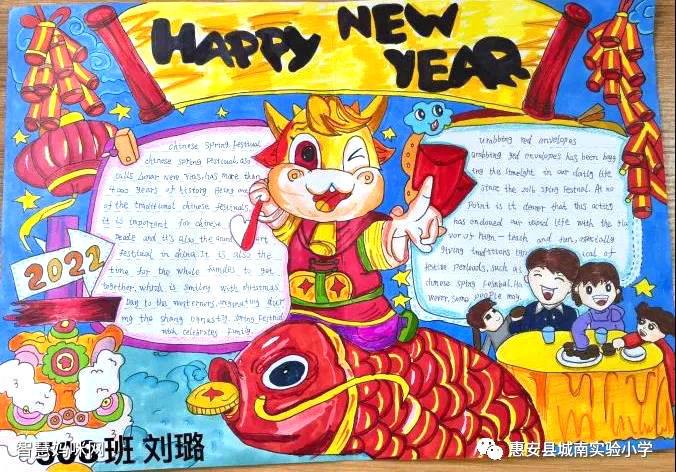 HAPPY NEW
YEAR
chinese Spring Festival
chinese spring Festival, also
calls Lunar New Year, has more than
4000 years of history. Being one
of the traditional chinese festivals,
it is important for chinese
people and it's also the
festival in china. It is also the
time for the whole families to get
together, which is similar with christmas
Day to the westerners. originating dur
ing the shang Dynasty. spring Festival
which celebrates family.
Grabbing red envelopes
Grabbing red envelopes has been hogg
ing the limelight in our daily life
since the 2015 spring Festival. At no
point is it denier that this activity
has endowed our social life with the fla
vor of high-tech and fun, especially
giving traditions typical of
festive periods, such as
chinese spring Festival. Ho
wever, some people may
2022
班 刘璐
智慧妈咪网
惠安县城南实验小学